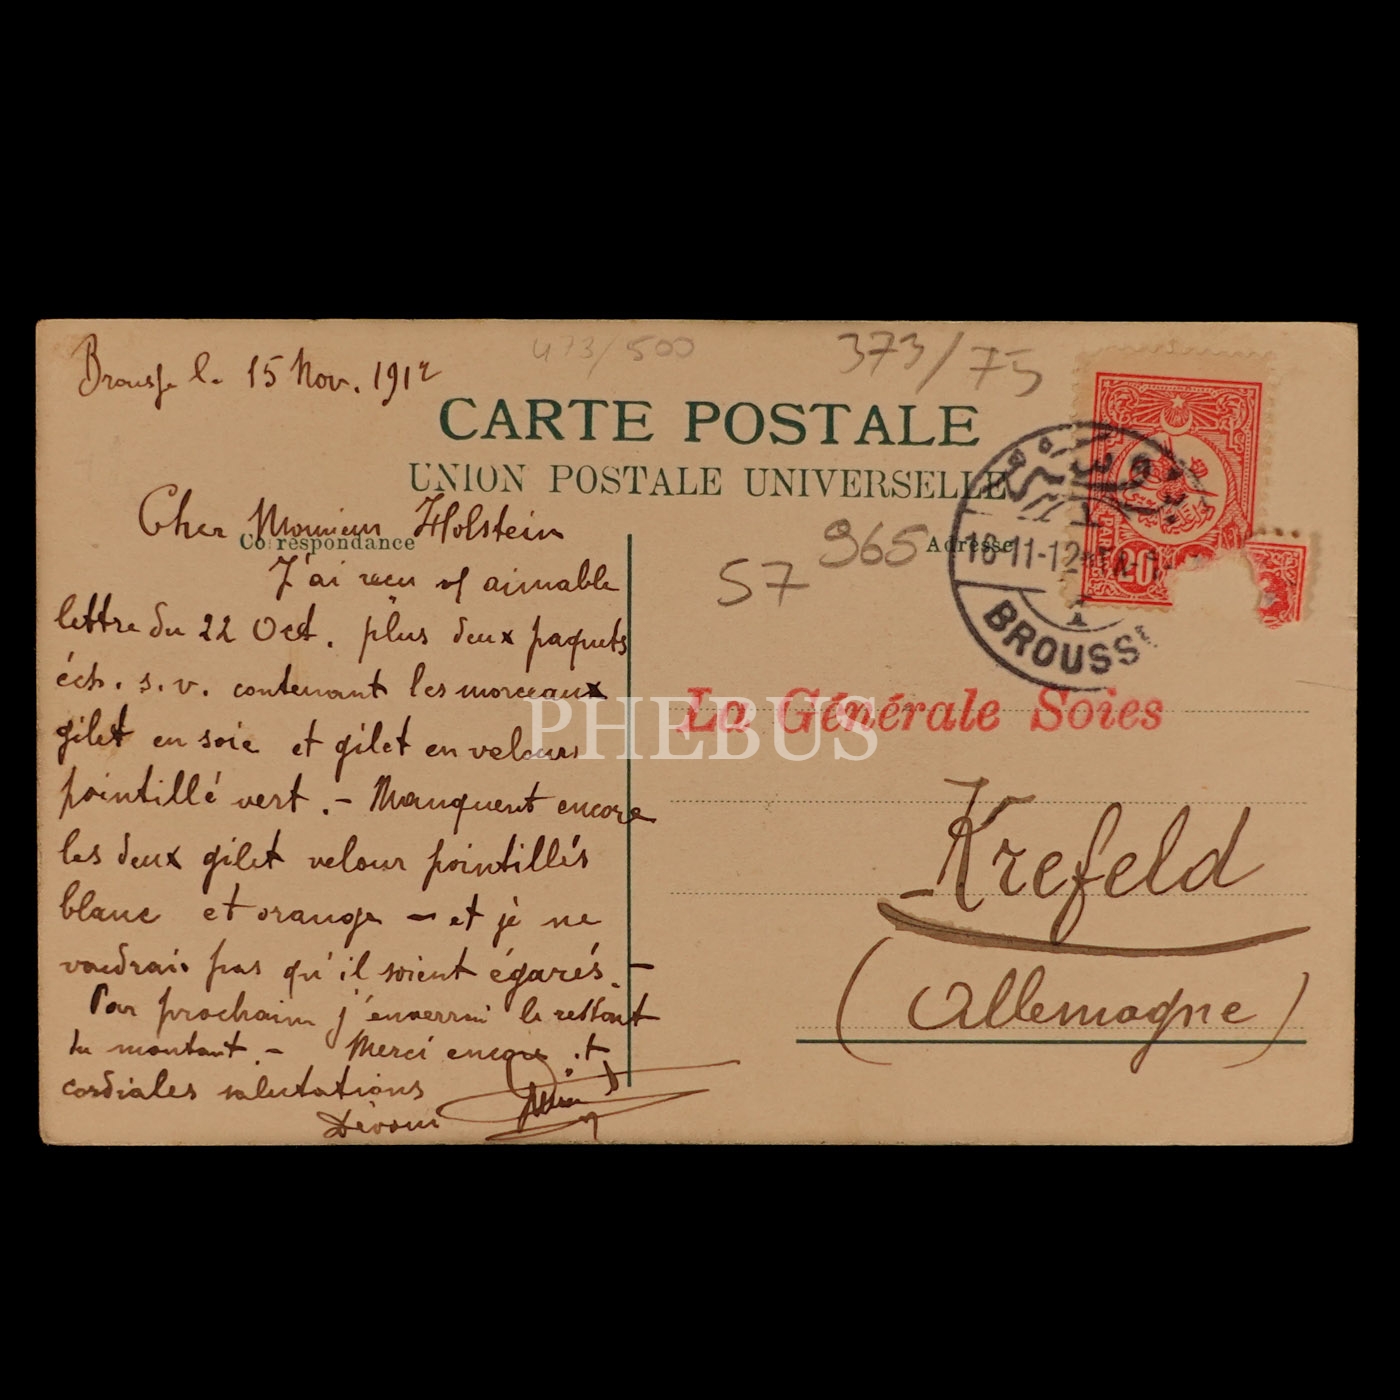 Brousse le 15 Nov. 1912
473/500
373/75
CARTE POSTALE
UNION POSTALE UNIVERSELLE
Cher Monsieur Holstein
Correspondance
J'ai reçu v/ aimable
lettre du 22 Oct. plus deux paquets
éch. s. v. contenant les morceaux
gilet en soie et gilet en velours
pointillé vert. - Manquent encore
les deux gilet velour pointillés
blanc et orange - et je ne
voudrais pas qu'il soient égarés. -
Par prochain j'enverrai le restant
du montant. - Merci encore et
cordiales salutations
Dévoué
57
965
Adresse
16-11-12
BROUSS
20
PAR
La Générale Soies
PHEBUS
Krefeld
(Allemagne)